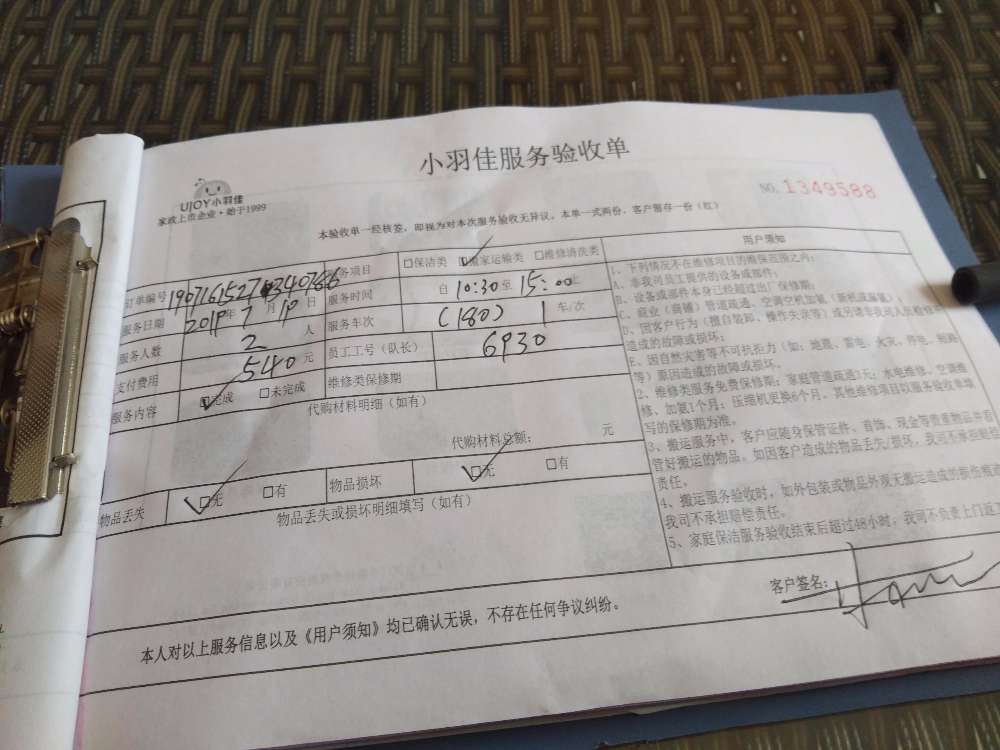 小羽佳服务验收单
UJOY小羽佳
家政上市企业·始于1999
NO. 1349588
本验收单一经核签，即视为对本次服务验收无异议。本单一式两份，客户留存一份（红）
订单编号 服务项目 □保洁类 □搬家运输类 □维修清洗类
服务日期 2019年7月19日 服务时间 自 10:30 至 15:00 止
服务人数 2 人 服务车次 (180) 1 车/次
支付费用 540 元 员工工号（队长） 6930
服务内容 □完成 □未完成 维修类保修期
代购材料明细（如有）
代购材料总额： 元
物品丢失 □无 □有 物品损坏 □无 □有
物品丢失或损坏明细填写（如有）
用户须知
1、下列情况不在维修项目的维保范围之内：
A、非我司员工提供的设备或部件；
B、设备或部件本身已经超过出厂保修期；
C、商业（商铺）管道疏通、空调空机加氟
D、因客户行为（擅自装卸、操作失误等）或另请非我司人员检修
造成的故障或损坏；
E、因自然灾害等不可抗拒力（如：地震、雷电、火灾、停电、短路
等）原因造成的故障或损坏。
2、维修类服务免费保修期：家庭管道疏通3天；水电维修、空调维
修、加氟1个月；压缩机更换6个月。其他维修项目以服务验收单填
写的保修期为准。
3、搬运服务中，客户应随身保管证件、首饰、现金等贵重物品并看
管好搬运的物品。如因客户造成的物品丢失/损坏，我司不承担赔偿
责任。
4、搬运服务验收时，如外包装或物品外观无搬运造成的损伤痕迹
我司不承担赔偿责任。
5、家庭保洁服务验收结束后超过48小时，我司不负责上门返工
客户签名：
本人对以上服务信息以及《用户须知》均已确认无误，不存在任何争议纠纷。